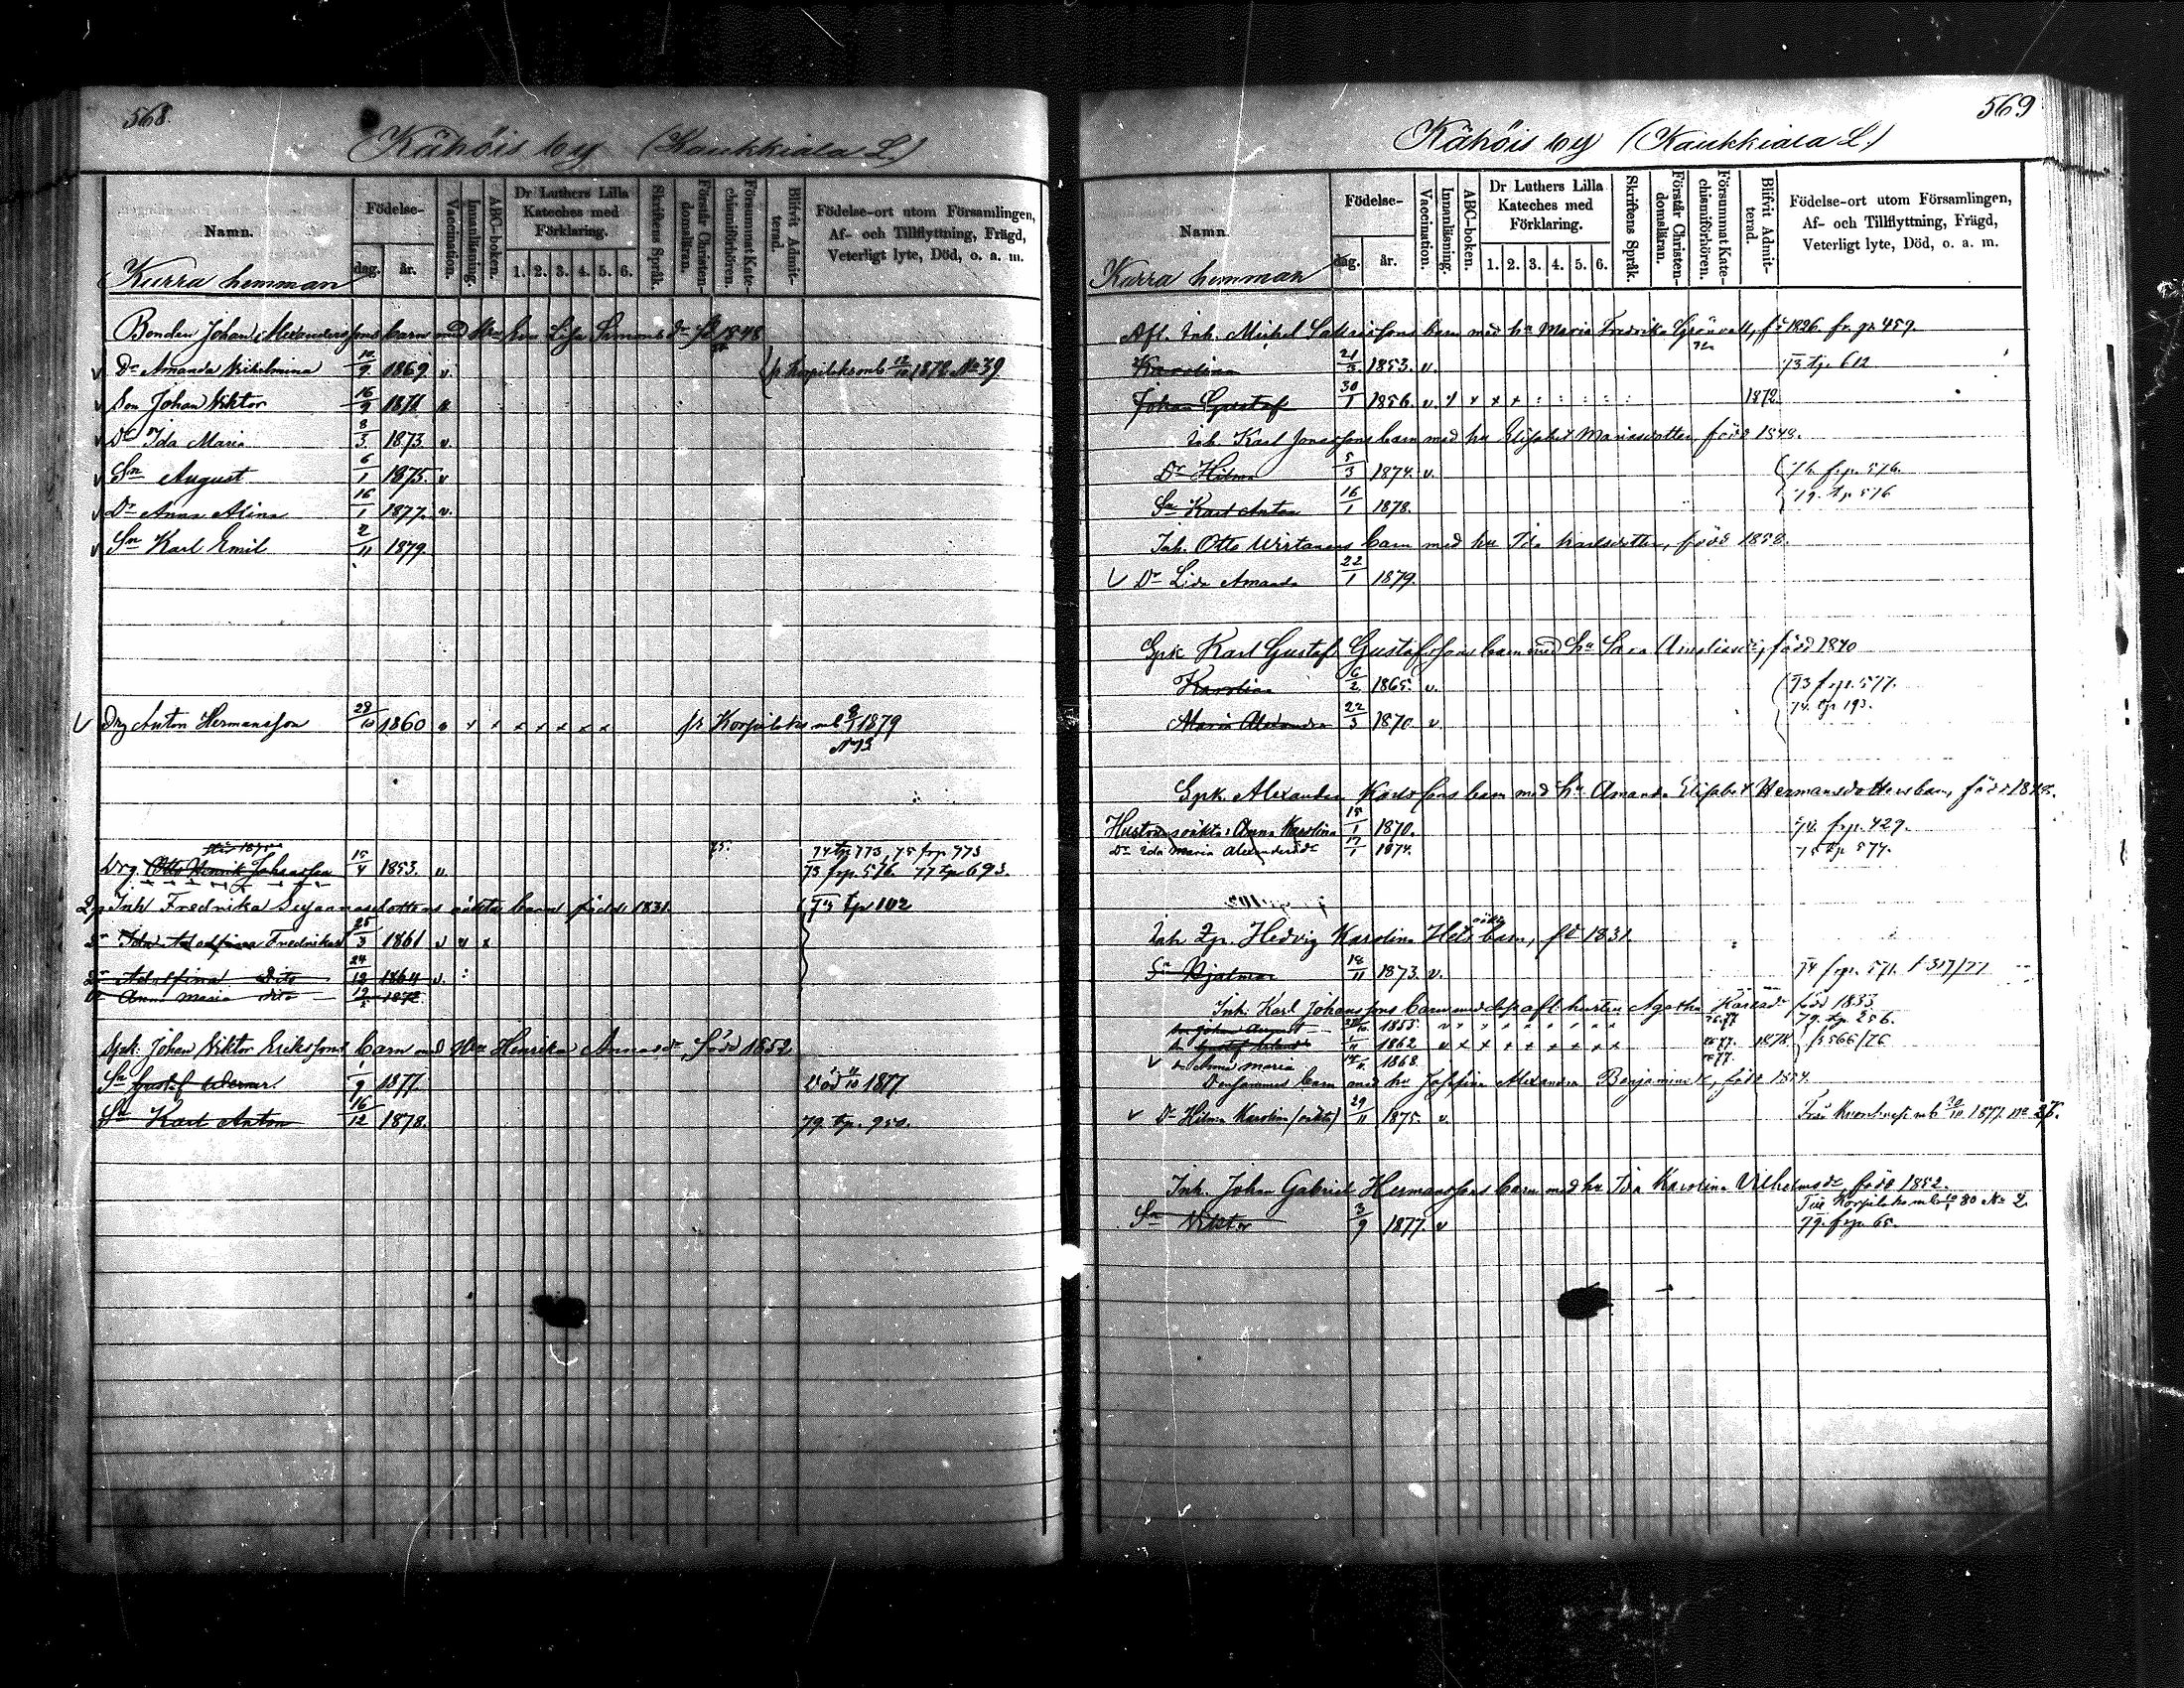 568.
Kähöis by (Kaukkiala L.)
Namn.
Födelse-
dag.
år.
Vaccination.
Innanläsning.
ABC-boken.
Dr Luthers Lilla
Kateches med
Förklaring.
1. 2. 3. 4. 5. 6.
Skriftens Språk.
Förstår Christen-
domsläran.
Försummat Kate-
chismiförhören.
Blifvit Admit-
terad.
Födelse-ort utom Församlingen,
Af- och Tillflyttning, Frägd,
Veterligt lyte, Död, o. a. m.
Kurra hemman
Bonden Johan Alexanderssons barn med Eva Lisa 1848
v Dr Amanda Wilhelmina 9 1869. v. fr Korpilaks mb 12/10 1878 No 39
v Son Johan Viktor 16/9 1871
v Dr Ida Maria 8/3 1873 v.
v Sn August 6/1 1875. v
v Dr Anna Alina 16/1 1877. v.
v Sn Karl Emil 2/11 1879
v Drg Anton Hermansson 28/10 1860 x x x x x x x fr Korpilaks mb 1879
Drg. Otto Henrik Johansson 15/4 1853. v. 75.
74 tp 773, 75 frp 773
73 frp. 576 77 tp 693.
Inh Fredrika Susannasdotters oäkta barn född 1831. 73 tp 102
Dr Ida Adolfina Fredrikasd 25/3 1861 v v x
Dr Adolfina Dito 24/12 1864 v. :
Dr Anna Maria dito 1872
Johan Viktor Erikssons barn med Hu Henrika Annasdr, född 1852
Sn Gustaf Werner 1/9 1877 Död 1877
Sn Karl Anton 16/12 1878. 79. tp. 950.
569
Kähöis by (Kaukkiala L.)
Namn.
Födelse-
dag.
år.
Vaccination.
Innanläsning.
ABC-boken.
Dr Luthers Lilla
Kateches med
Förklaring.
1. 2. 3. 4. 5. 6.
Skriftens Språk.
Förstår Christen-
domsläran.
Försummat Kate-
chismiförhören.
Blifvit Admit-
terad.
Födelse-ort utom Församlingen,
Af- och Tillflyttning, Frägd,
Veterligt lyte, Död, o. a. m.
Kurra hemman
Afl. Inh. Michel barn med hu Maria Fredrika Grönvall, fd 1826. fr. pr 459.
Karolina 21/3 1853. v. 73 tp. 612
Johan Gustaf 30/1 1856. v. x x x x : : : : : 1872
Inh. Karl Jonassons barn med hu Elisabet Mariasdotter, född 1849.
Dr Hilma 5/3 1874. v. frp. 576
Sn Karl Anton 16/1 1878. 79. tp 576
Inh. Otto Wirtanens barn med hu Ida Karlsdotter, född 1858.
v Dr Lida Amanda 22/1 1879
Spk Karl Gustaf Gustafssons barn med hu Sara född 1840
Karolina 6/2 1865. v. 73 frp. 577.
Maria Alexandra 22/3 1870 v 74. tp 193.
Spk. Alexander Karlssons barn med hu Amanda Elisabet Hermansdotters barn, född
Hustruns oäkta: Anna Karolina 15/1 1870. 74. frp. 429.
Dr Ida Maria Alexandersdr 17/1 1874. 75 tp 577.
Inh Qp. Hedvig Karolina oäkta barn, fd 1831.
Sn Hjalmar 18/11 1873. v. 74 frp. 571.
Inh. Karl Johanssons barn med hustru Agatha född 1833
Sn Johan August 1855. 79. tp. 256.
Sn Gustaf 1862 v x x x x x x x x 1878
v Dr Anna Maria 1868.
Densammes barn med hu Josefina Alexandra Benjaminsdr, född
v Dr Hilma Karolina (oäkta) 29/11 1875. v. 1877 No
Inh. Johan Gabriel Hermanssons barn med hu Ida Karolina Vilhelmsdr, född 1852.
Sn Viktor 3/9 1877 v Till Korpilaks mb 80 No 2.
79. frp. 65.